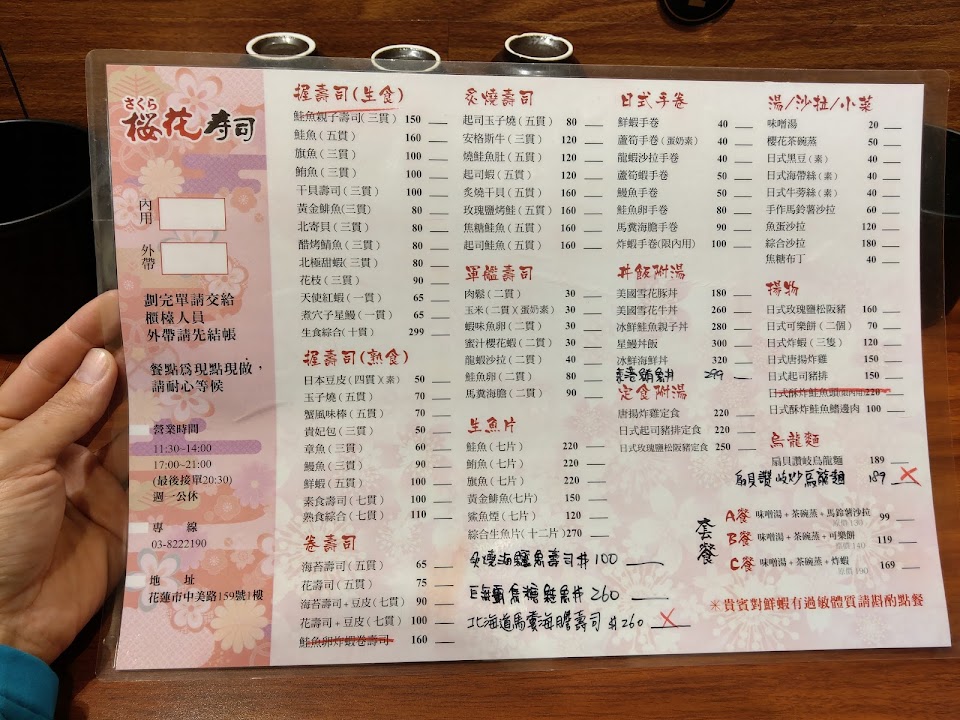 さくら
桜花寿司
內用
外帶
劃完單請交給
櫃檯人員
外帶請先結帳
餐點為現點現做，
請耐心等候
營業時間
11:30~14:00
17:00~21:00
(最後接單20:30)
週一公休
專 線
03-8222190
地 址
花蓮市中美路159號1樓
握壽司(生食)
鮭魚親子壽司(三貫) 150
鮭魚(五貫) 160
旗魚(三貫) 100
鮪魚(三貫) 100
干貝壽司(三貫) 100
黃金鯡魚(三貫) 80
北寄貝(三貫) 80
醋烤鯖魚(三貫) 80
北極甜蝦(三貫) 80
花枝(三貫) 90
天使紅蝦(一貫) 65
煮穴子星鰻(一貫) 65
生食綜合(十貫) 299
握壽司(熟食)
日本豆皮(四貫)(素) 50
玉子燒(五貫) 70
蟹風味棒(五貫) 70
貴妃包(三貫) 50
章魚(三貫) 60
鰻魚(三貫) 90
鮮蝦(五貫) 100
素食壽司(七貫) 100
熟食綜合(七貫) 110
卷壽司
海苔壽司(五貫) 65
花壽司(五貫) 75
海苔壽司+豆皮(七貫) 90
花壽司+豆皮(七貫) 100
鮭魚卵炸蝦卷壽司 160
炙燒壽司
起司玉子燒(五貫) 80
安格斯牛(三貫) 120
燒鮭魚肚(五貫) 120
起司蝦(五貫) 120
炙燒干貝(五貫) 160
玫瑰鹽烤鮭(五貫) 160
焦糖鮭魚(五貫) 160
起司鮭魚(五貫) 160
軍艦壽司
肉鬆(二貫) 30
玉米(二貫)(蛋奶素) 30
蝦味魚卵(二貫) 30
蜜汁櫻花蝦(二貫) 30
龍蝦沙拉(二貫) 40
鮭魚卵(二貫) 80
馬糞海膽(二貫) 90
生魚片
鮭魚(七片) 220
鮪魚(七片) 220
旗魚(七片) 220
黃金鯡魚(七片) 150
鮭魚煙(七片) 120
綜合生魚片(十二片) 270
炙燒海鱺魚壽司 #100
巨無霸焦糖鮭魚丼 260
北海道馬雲海膽壽司 #260
日式手卷
鮮蝦手卷 40
蘆筍手卷(蛋奶素) 40
龍蝦沙拉手卷 40
蘆筍蝦手卷 50
鰻魚手卷 50
鮭魚卵手卷 80
馬糞海膽手卷 90
炸蝦手卷(限內用) 100
丼飯附湯
美國雪花豚丼 180
美國雪花牛丼 260
冰鮮鮭魚親子丼 280
星鰻丼飯 300
冰鮮海鮮丼 320
鮪魚丼 299
定食附湯
唐揚炸雞定食 220
日式起司豬排定食 220
日式玫瑰鹽松阪豬定食 250
湯/沙拉/小菜
味噌湯 20
櫻花茶碗蒸 50
日式黑豆(素) 40
日式海帶絲(素) 40
日式牛蒡絲(素) 40
手作馬鈴薯沙拉 60
魚蛋沙拉 120
綜合沙拉 180
焦糖布丁 40
揚物
日式玫瑰鹽松阪豬 160
日式可樂餅(二個) 70
日式炸蝦(三隻) 120
日式唐揚炸雞 150
日式起司豬排 150
日式酥炸鮭魚頭(限內用) 220
日式酥炸鮭魚鰭邊肉 100
烏龍麵
扇貝讚岐烏龍麵 189
扇貝讚岐炒烏龍麵 189
套餐
A餐 味噌湯+茶碗蒸+馬鈴薯沙拉 99
原價130
B餐 味噌湯+茶碗蒸+可樂餅 119
原價140
C餐 味噌湯+茶碗蒸+炸蝦 169
原價190
＊貴賓對鮮蝦有過敏體質請斟酌點餐